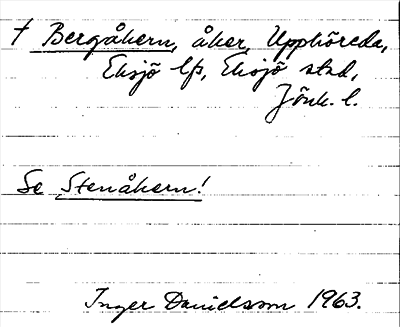 † Bergåkern, åker, Upphöreda,
Eksjö lfs, Eksjö stad,
Jönk. l.
Se Stenåkern!
Inger Danielsson 1963.